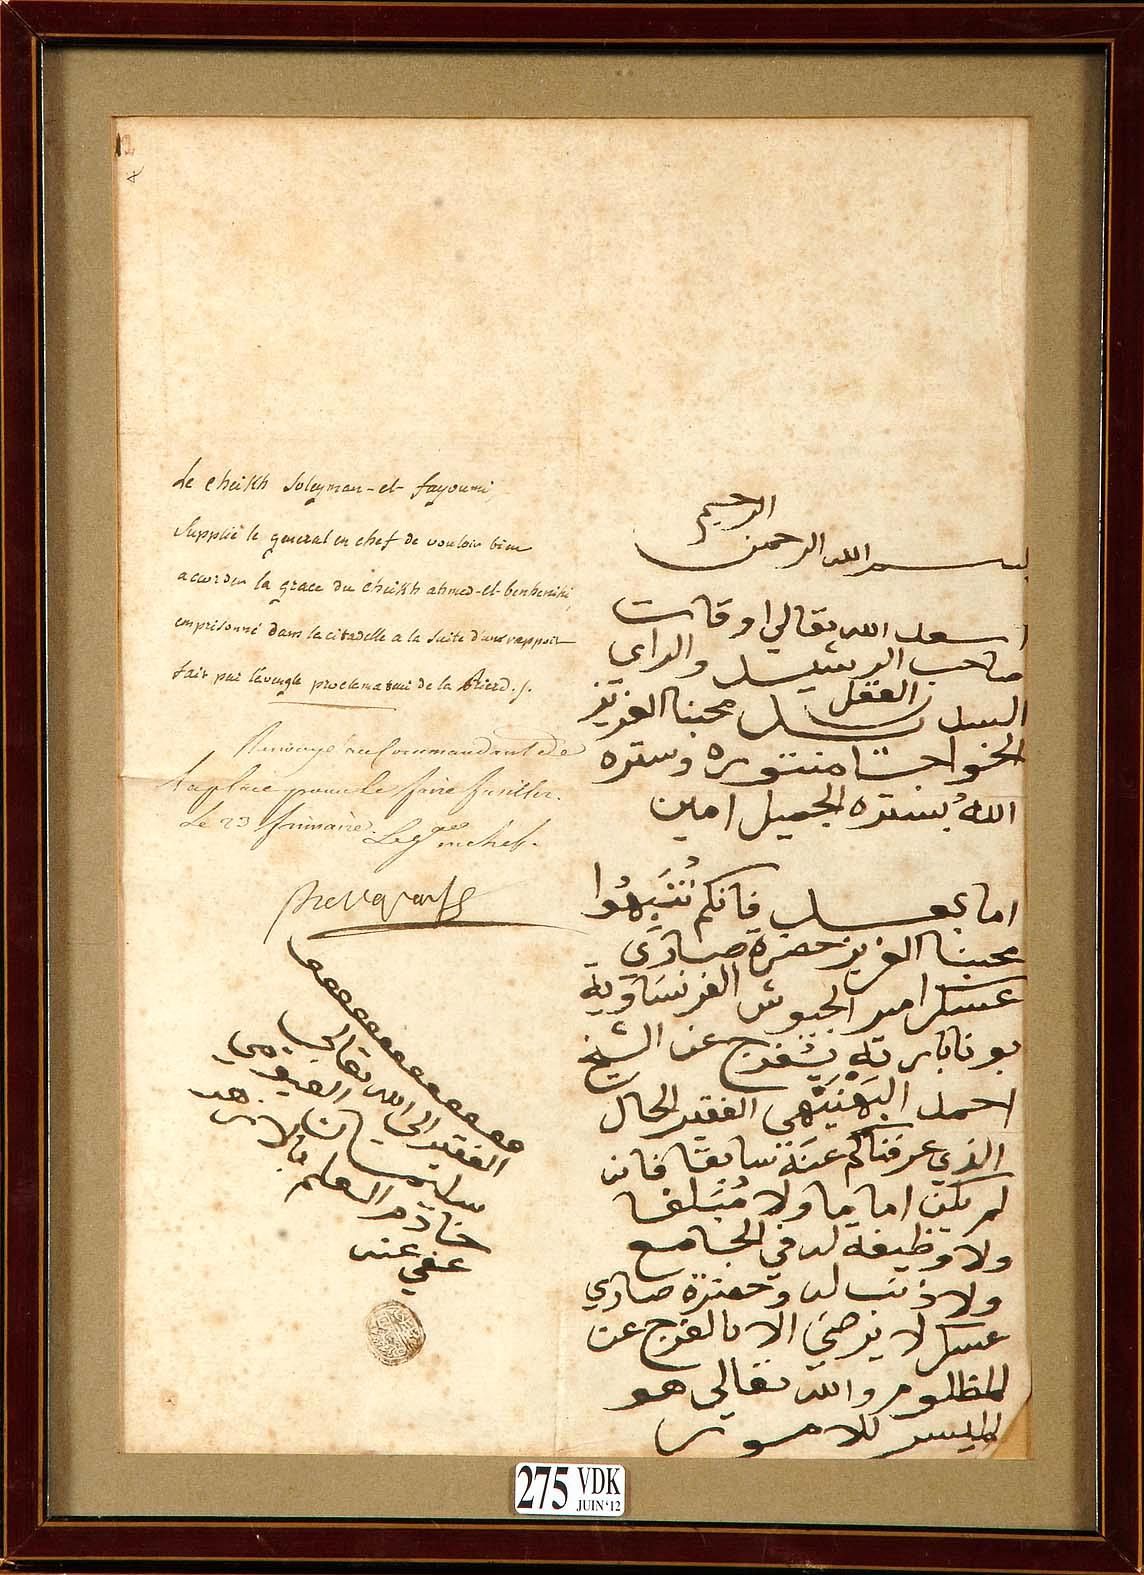 Le Cheikh Soleyman-el-fayoumi,
Supplie le general en chef de vouloir bien
accorder la grace du Cheikh ahmed-el-benhenihi,
emprisonné dans la citadelle a la suite d'un rapport
fait par l'aveugle proclamateur de la
Renvoyé au Commandant de
la place pour le faire fusiller.
Le 23 frimaire. Le Gal en chef.
Bonaparte
الرحيم
بسم الله الرحمن
اسعد الله تعالي اوقات
صاحب الرشيد والراي
العقل
السديد محبنا العزيز
الخواجا منتوره وستره
الله بستره الجميل امين
اما بعد فانكم تنبهوا
محبنا العزيز حضرة صاري
عسكر امير الجيوش الفرنساوية
بونابارته يفرج عن الشيخ
احمد البهنيهي الفقير الحال
الذي عرفناكم عنه سابقا فانه
لم يكن اماما ولا مبلغا
ولا وظيفة له في الجامع
ولا ذنب له وحضرة صاري
عسكر لا يرضي الا بالفرج عن
المظلوم والله تعالي هو
الميسر للامور
الفقير الى الله تعالي
سليمان الفيومي
خادم العلم بالازهر
عفي عنه
275 VDK
JUIN '12